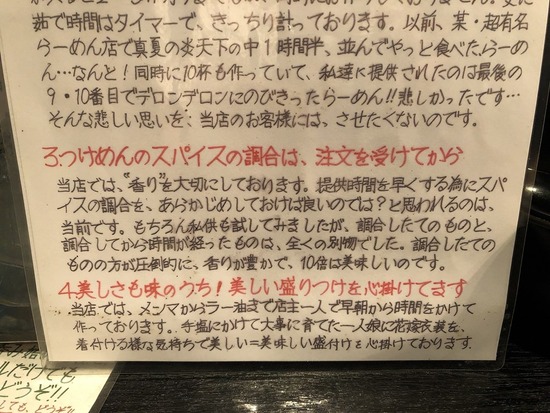 茹で時間はタイマーで、きっちり計っております。以前、某・超有名
らーめん店で真夏の炎天下の中1時間半、並んでやっと食べたらーめ
ん…なんと!同時に10杯も作っていて、私達に提供されたのは最後の
9・10番目でデロンデロンにのびきったらーめん!!悲しかったです…
そんな悲しい思いを、当店のお客様には、させたくないのです。
3つけめんのスパイスの調合は、注文を受けてから
当店では、"香り"を大切にしております。提供時間を早くする為にスパ
イスの調合を、あらかじめしておけば良いのでは?と思われるのは、
当前です。もちろん私供も試してみましたが、調合したてのものと、
調合してから時間が経ったものは、全くの別物でした。調合したての
ものの方が圧倒的に、香りが豊かで、10倍は美味しいのです。
4美しさも味のうち!美しい盛りつけを心掛けてます
当店では、メンマからラー油まで店主一人で早朝から時間をかけて
作っております。手塩にかけて大事に育てた一人娘に花嫁衣装を、
着付ける様な気持ちで美しい=美味しい盛付けを心掛けております。
どうぞ!!